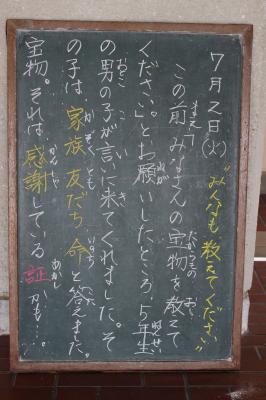 7月2日(火)〝みんなも教えてください〟
この前「みなさんの宝物を教えて
ください。」とお願いしたところ、5年生
の男の子が言いに来てくれました。そ
の子は、家族 友だち 命 と答えました。
宝物。それは、感謝している証、かも…。